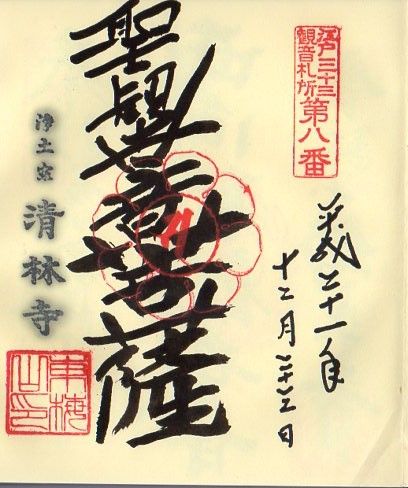 江戸三十三
観音札所
第八番
平成二十一年
十二月二十三日
聖観世音菩薩
浄土宗
清林寺